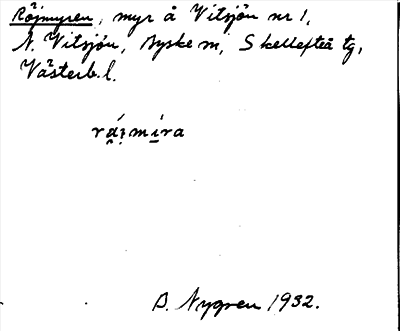 Röjmyren, myr å Vitsjön nr 1,
N. Vitsjön, Byske m, Skellefteå tg,
Västerb. l.
rá̯i̯mi̱ra
B. Nygren 1932.